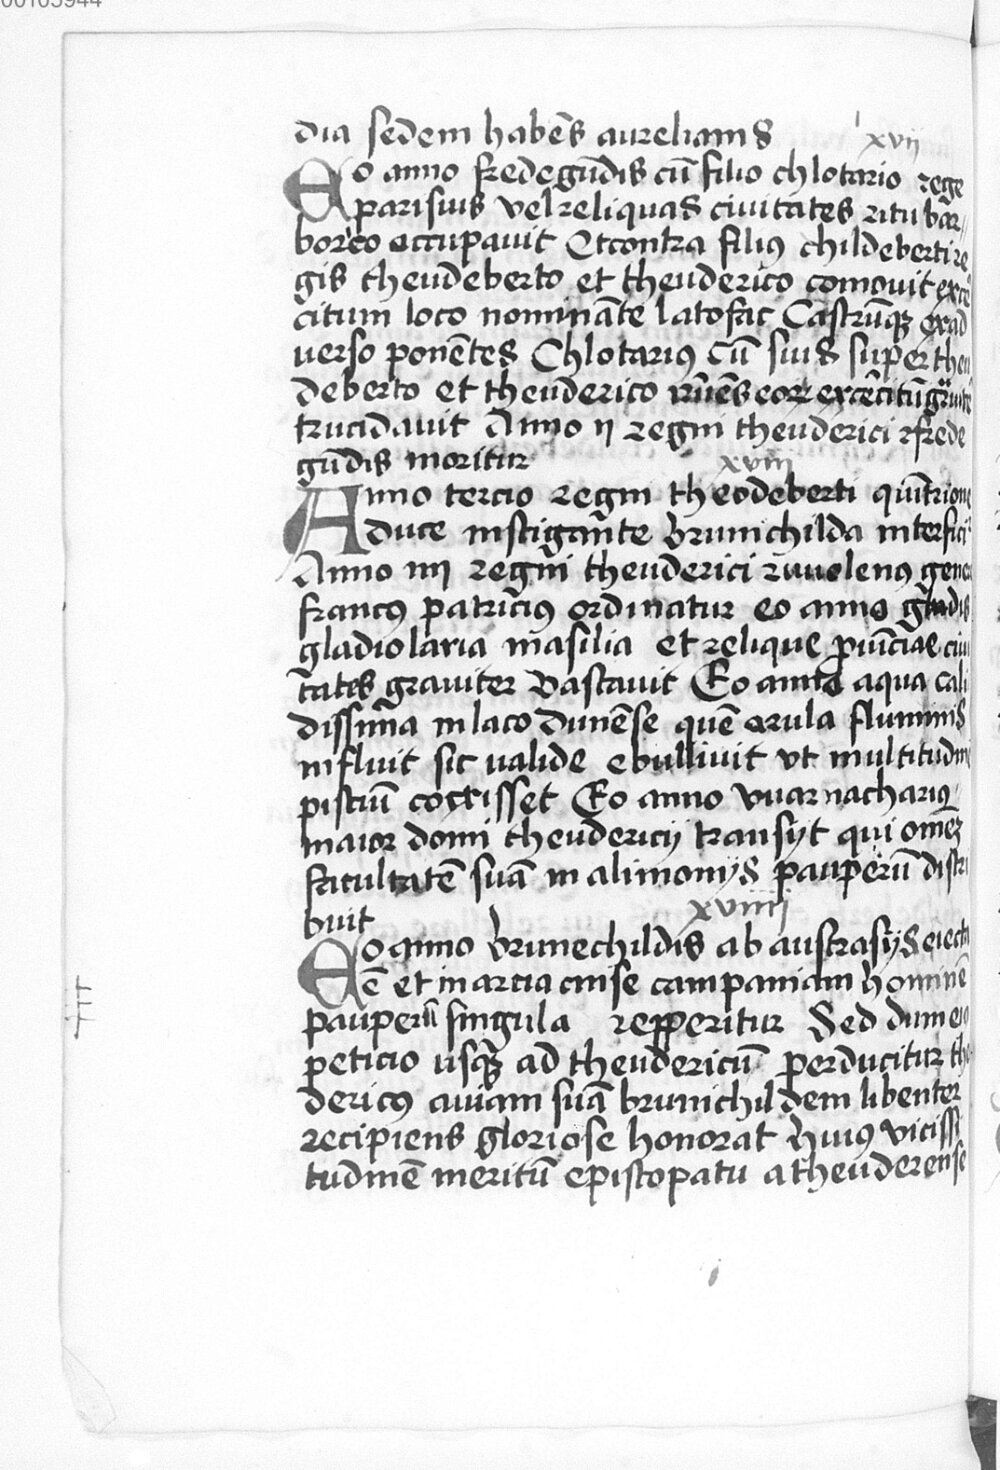 00105944
dia sedem habēs aurelianis
xvij
Eo anno fredegūdis cū filio chlotario rege
parisius vel reliquas ciuitates ritu bar
boreo occupauit Et contra filius childeberti re
gis theudeberto et theuderico comouit exce
citum loco nomināte latofac Castrūqꝫ exad
uerso ponētes Chlotariꝯ cū suis super theu
deberto et theuderico ruēs eoꝝ excercitū grauit
trucidauit Anno ij regni theuderici frede
gūdis moritur
xviij
Anno tercio regni theodeberti quītrione
duce instigante brunichilda interfici
Anno iiij regni theuderici zuuolenꝯ gene
francꝯ patriciꝯ ordinatur eo anno gladis
gladiolaria masilia et relique prouīciae ciui
tates grauiter vastauit Eo anno aqua cali
dissima in laco dunēse quē arula fluminis
influit sic ualide ebulliuit vt multitudini
pisciū coxisset Eo anno vuarnachariꝯ
maior domi theudericij transijt qui omēꝫ
facultatē suā in alimonijs pauperū distri
buit
xviiij
Eo anno brunechildis ab austrasijs eiecta
ē et in arcia cinse campaniam hominē
pauperū singula repperitur Sed dum eio
peticio usqꝫ ad theudericū perducitur the
dericꝯ auiam suā brunichildem libenter
recipiens gloriose honorat huiꝯ vicissi
tudinē meritū episcopatu a theuderense